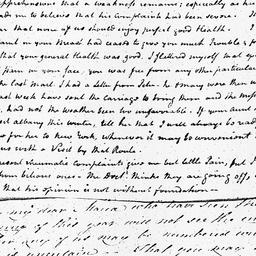 apprehensions that a weakness remains; especially as he
leads me to believe that his Complaint had been severe. I
fear that none of us should enjoy perfect good Health. I
and in your Head had ceased to give you much Trouble &
that your general Health was good. I flattered myself that
Pain in your face, you was free from any other particular
the last Mail. I had a letter from John. he & Mary were then
last week have sent the Carriage to bring them and the
had not the weather been too unfavorable. If your Aunt
visit Albany this winter, tell her that I will always be ready
to send for her to New York, whenever it may be convenient to
us with a Visit by that Route.
several rheumatic Complaints give me but little Pain, but I
from bilious ones. The Doctr. thinks they are going off &
that his opinion is not without foundation—
my dear Maria who have seen the
of this year will not see the
for any of us may be numbered
is uncertain — that you may